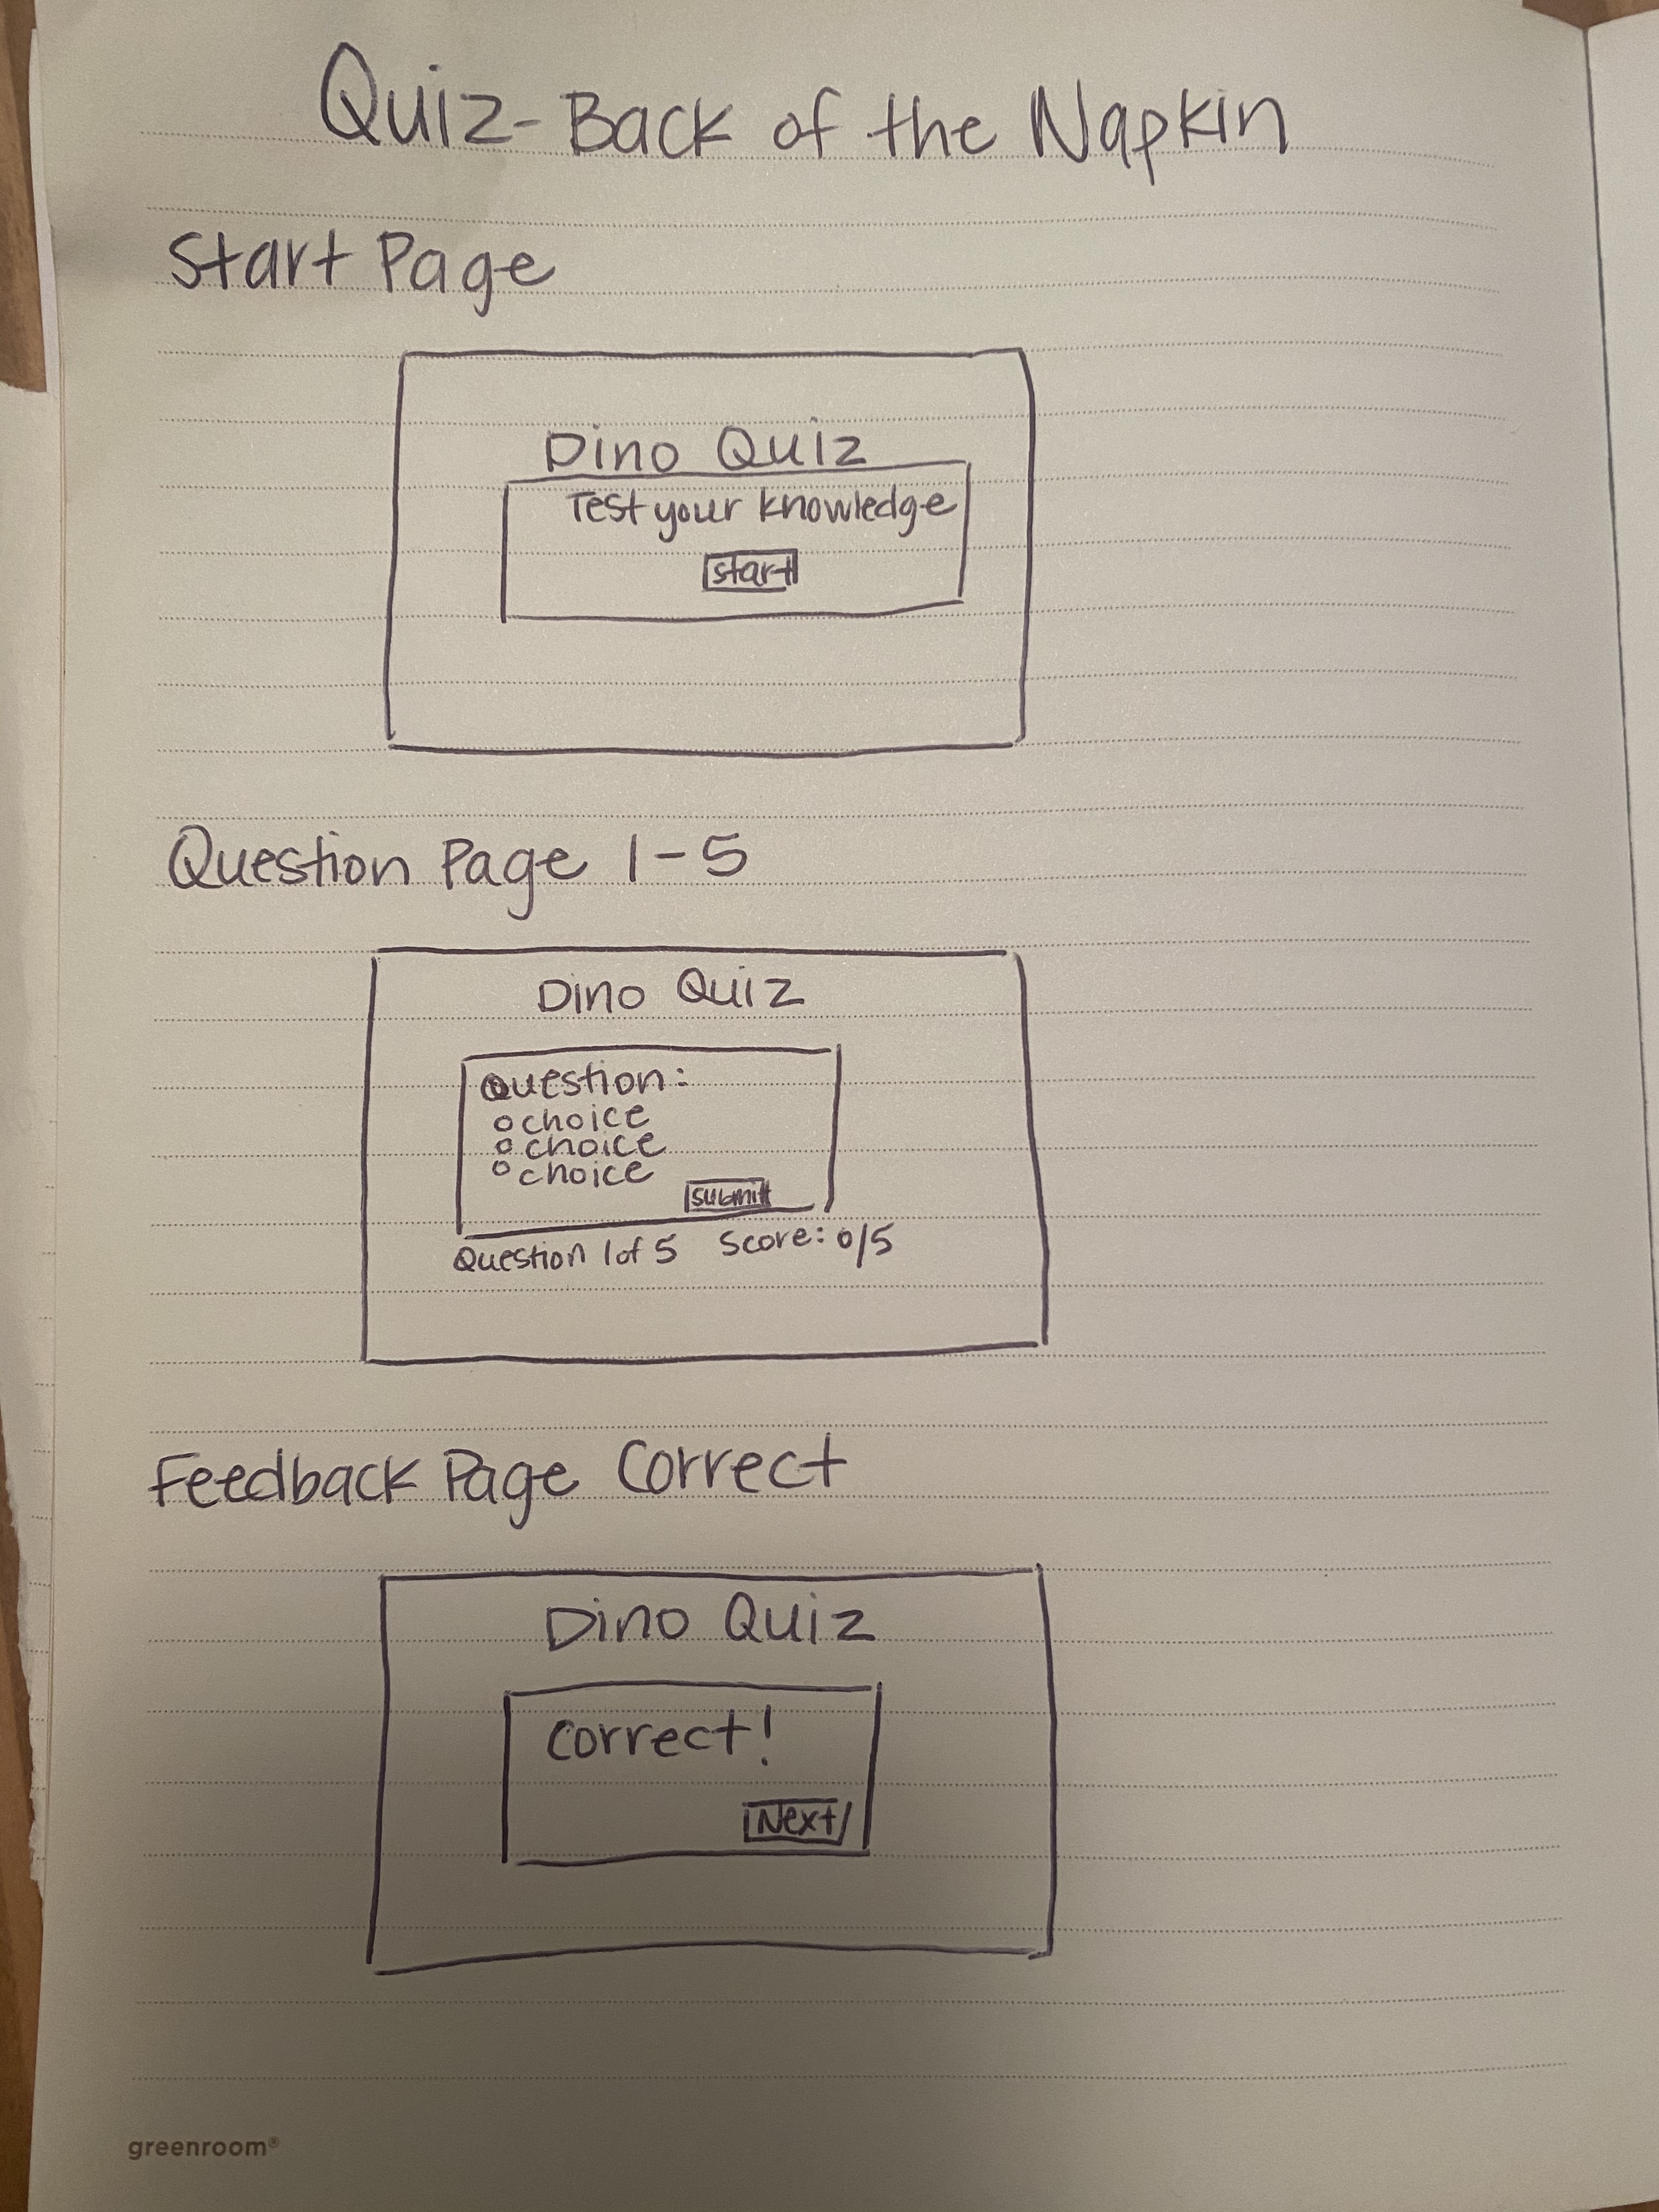 Quiz-Back of the Napkin
Start Page
Dino Quiz
Test your knowledge
Start
Question Page 1-5
Dino Quiz
Question:
o choice
o choice
o choice
submit
Question 1 of 5 Score: 0/5
Feedback Page Correct
Dino Quiz
Correct!
Next
greenroom®